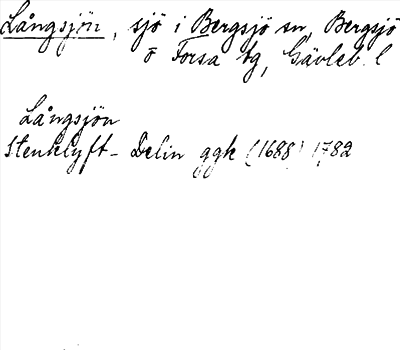 Långsjön, sjö i Bergsjö sn, Bergsjö
o Forsa tg, Gävleb. l
Långsjön
Stenklyft- Delin ggk (1688) 1782